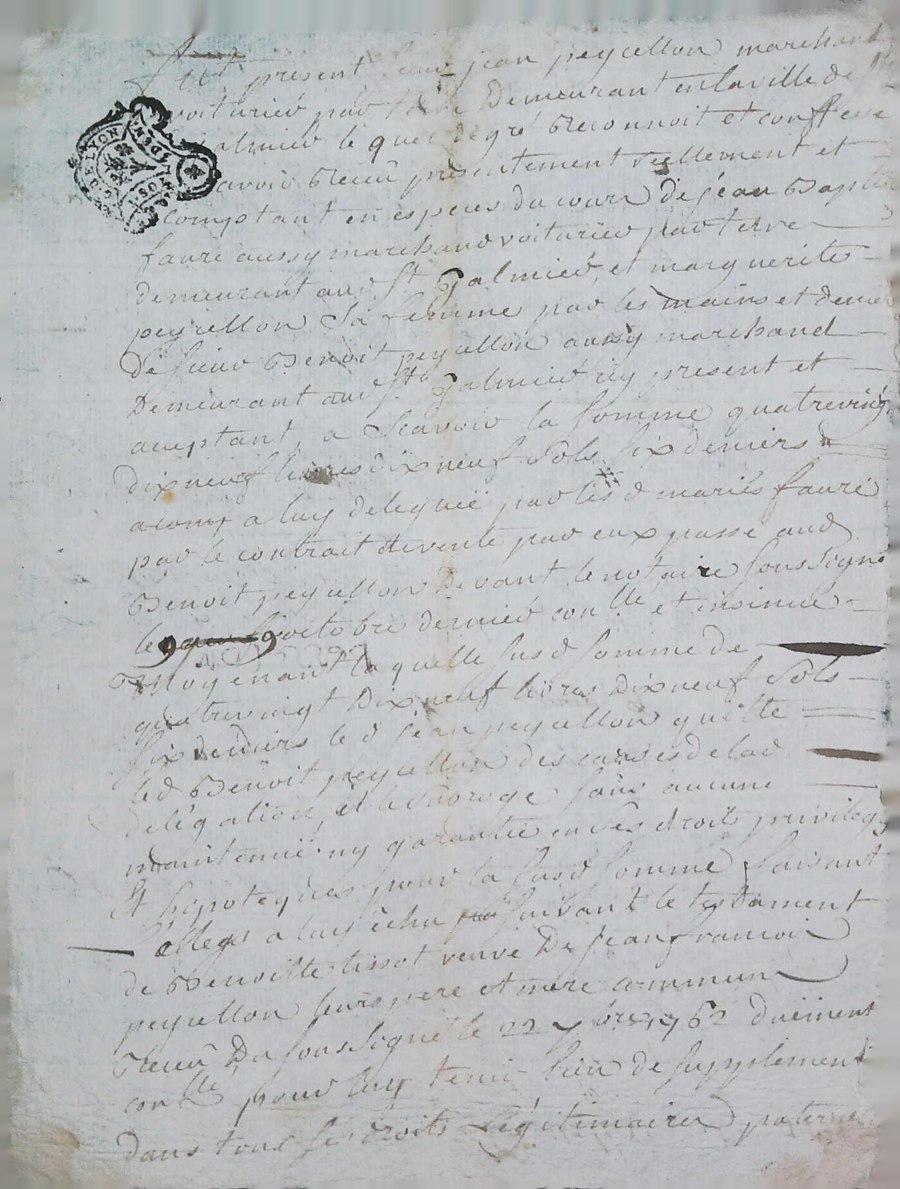 fut present sieur jean peycellon marchand
voiturier par terre demeurant en la ville de St
galmier le quel de gré reconnoit et confesse
avoir receu presentement reellement et
comptant en especes du cours de jean Baptiste
faure aussy marchand voiturier par terre
demeurant aud St Galmier et marguerite
peycellon sa femme par les mains et deniers
de sieur Benoit peycellon aussy marchand
demeurant aud St Galmier icy present et
aceptant, a scavoir la somme quatrevingt
dixneuf livres dix neuf sols six deniers
a luy deleguée par les d mariés faure
par le contrait de vente par eux passé aud
Benoit peycellon devant le notaire soussigné
le 9 octobre dernier conllé et insinué
Moyenant laquelle susd somme de
quatrevingt dixneuf livres dixneuf sols
six deniers le d jean peycellon quitte
led Benoit peycellon des causes de lad
delégation, et le subroge sans aucune
maintenüe ny garantie en ses droits privileges
Et hipoteques pour la susd somme faisant
a luy échu suivant le testament
de Benoitte tissot veuve de jean francois
peycellon leurs pere et mere commun
receu du soussigné le 22 7bre 1762 duëment
conllé pour luy tenir lieu de supplement
dans tous ses droits légitimaires paternel
LYON